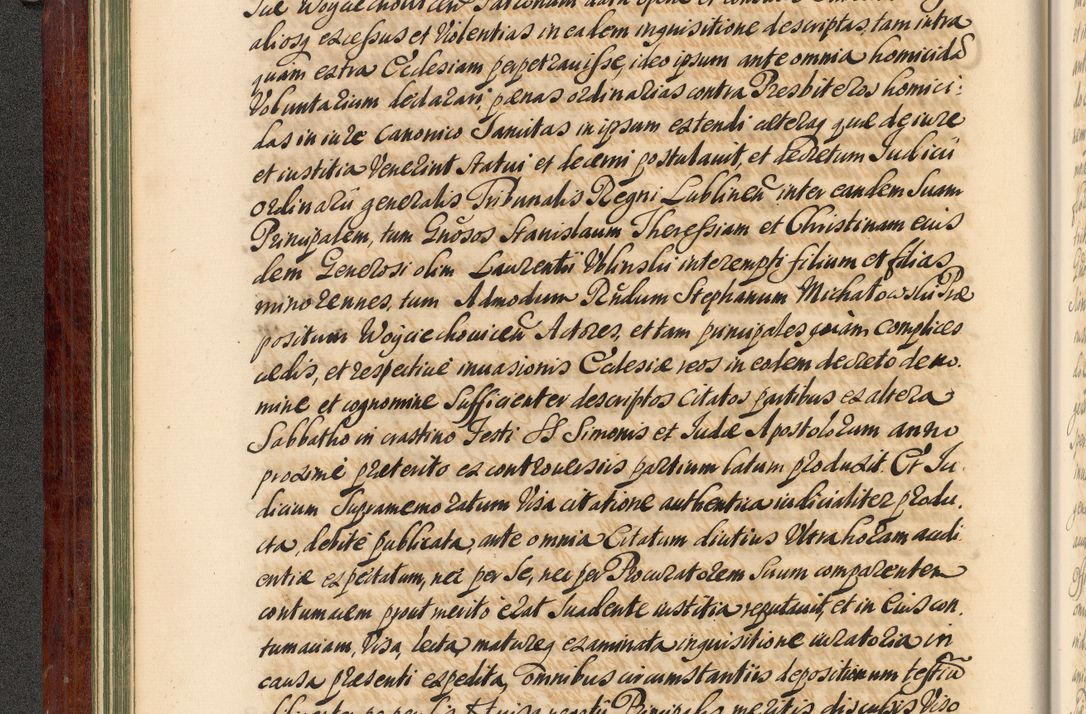 aliosq excessus et Violentias in eadem inquisitione descriptas, tam intra
quam extra Ecclesiam perpetrauisse, ideo ipsum ante omnia homicidã
Voluntarium declarari, pœnas ordinarias contra Presbiteros homici:
das in iure Canonico Sancitas in ipsum extendi cæteraq quæ de iure
et iustitia Venerint statui et decerni postulauit, et decretum Iudicii
Ordinarii generalis Tribunalis Regni Lublineñ inter eandem Suam
Principalem, tum Gnosos Stanislaum Theressiam et Christinam eius
dem Generosi olim Laurentii Wolinskii interempti filium et filias
minorennes, tum Admodum Rñdum Stephanum Michałowski Præ
positum Woyciechowiceñ Actores, et tam principales quàm complices
cædis, et respectiue inuasionis Ecclesiæ reos in eodem decreto de no.
mine et cognomine Sufficienter descriptos Citatos partibus ex altera
Sabbatho in crastino Festi SS Simonis et Iudæ Apostolorum anno
proximè præterito ex controuersiis partium latum produxit. Et Iu
dicium Supramemoratum Visa citatione authentica iudicialiter produ
cta, debitè publicata, ante omnia Citatum diutius Vltra horam audi
entiæ expectatum, nec per Se, nec per Procuratorem Suum comparentem
contumacem prout meritò erat Suadente iustitia reputauit, et in Eius con.
tumaciam, Visa, lecta matureq examinata inquisitione iuratoria in
causa præsenti expedita, Omnibus circumstantiis depositionum testiũ